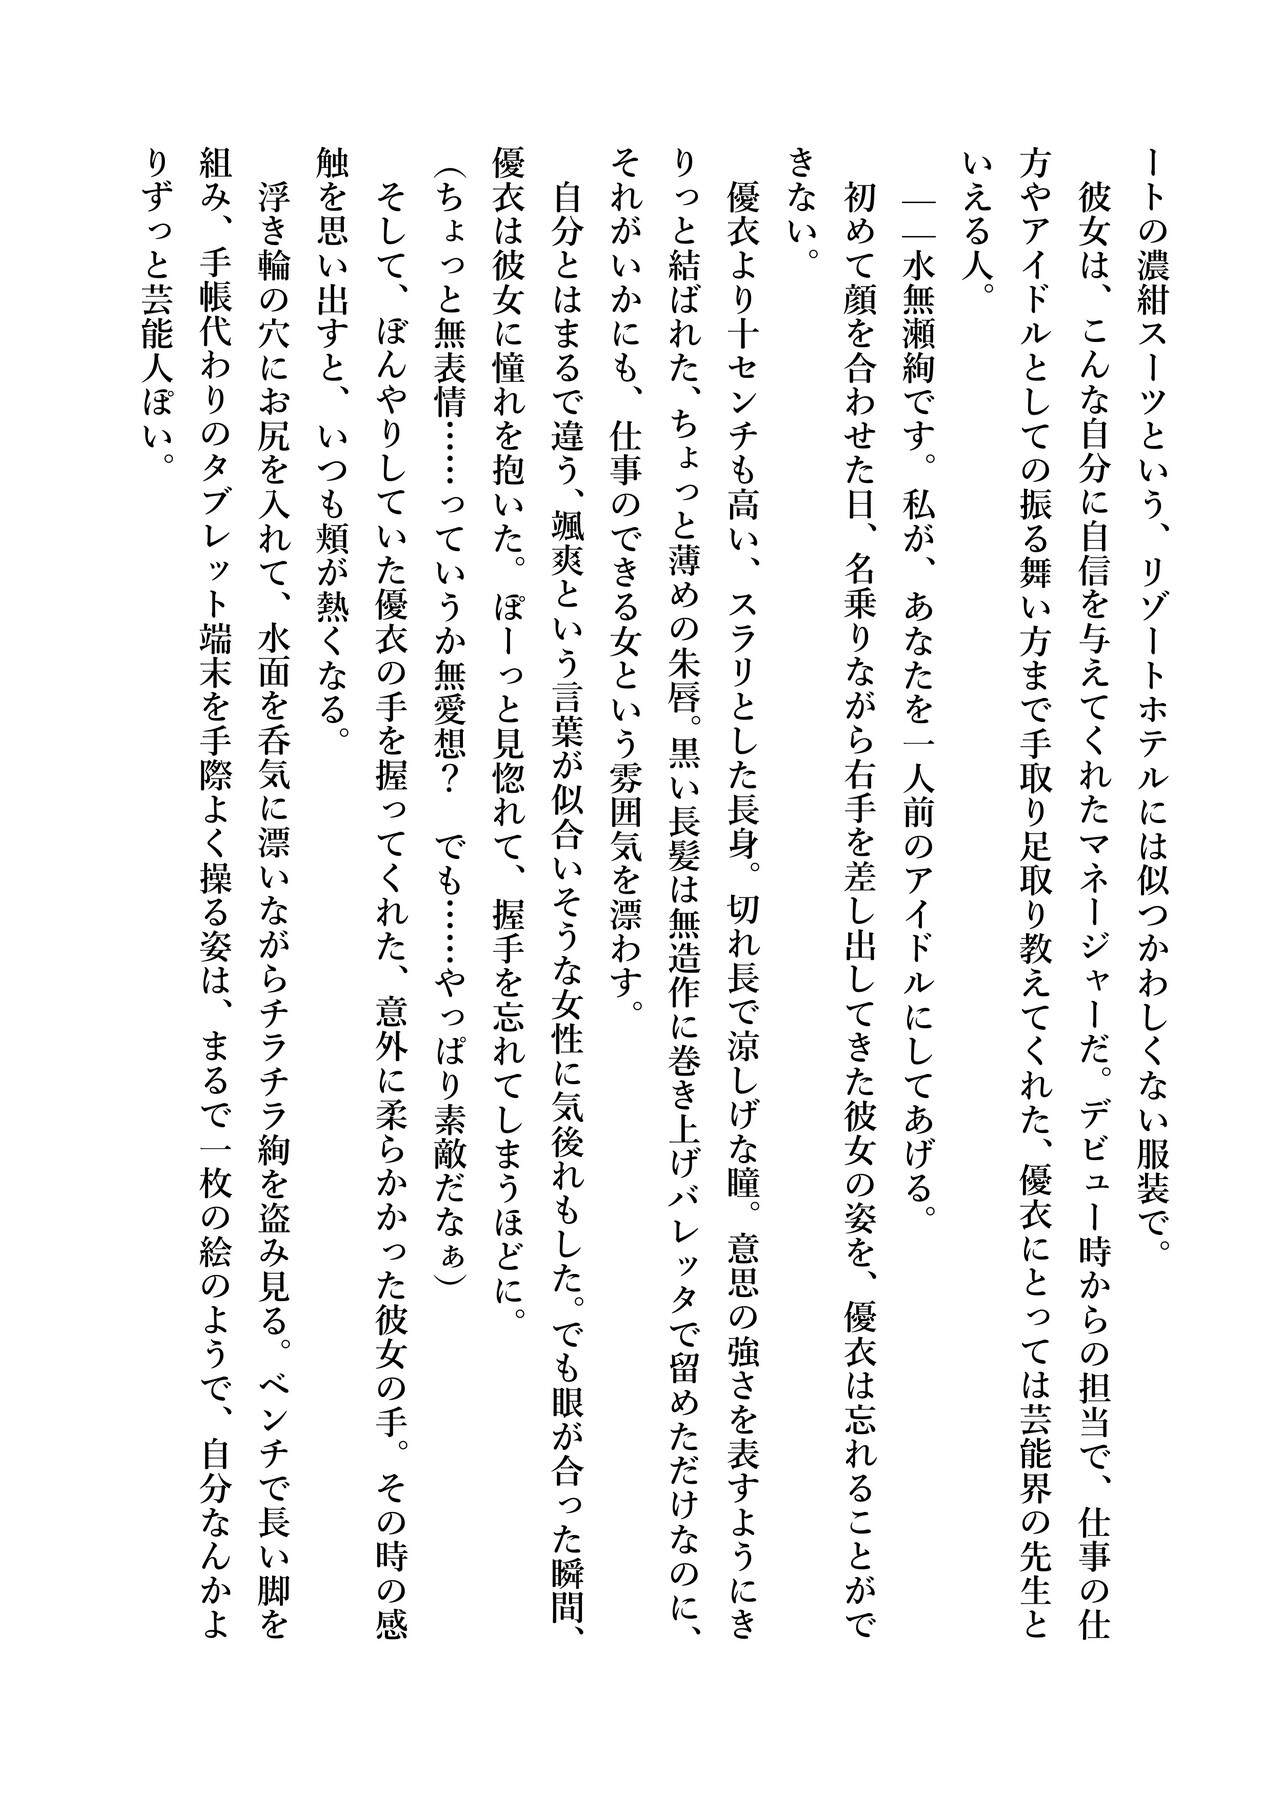 ートの濃紺スーツという、リゾートホテルには似つかわしくない服装で。
彼女は、こんな自分に自信を与えてくれたマネージャーだ。デビュー時からの担当で、仕事の仕
方やアイドルとしての振る舞い方まで手取り足取り教えてくれた、優衣にとっては芸能界の先生と
いえる人。
――水無瀬絢です。私が、あなたを一人前のアイドルにしてあげる。
初めて顔を合わせた日、名乗りながら右手を差し出してきた彼女の姿を、優衣は忘れることがで
きない。
優衣より十センチも高い、スラリとした長身。切れ長で涼しげな瞳。意思の強さを表すようにき
りっと結ばれた、ちょっと薄めの朱唇。黒い長髪は無造作に巻き上げバレッタで留めただけなのに、
それがいかにも、仕事のできる女という雰囲気を漂わす。
自分とはまるで違う、颯爽という言葉が似合いそうな女性に気後れもした。でも眼が合った瞬間、
優衣は彼女に憧れを抱いた。ぽーっと見惚れて、握手を忘れてしまうほどに。
（ちょっと無表情……っていうか無愛想？　でも……やっぱり素敵だなぁ）
そして、ぼんやりしていた優衣の手を握ってくれた、意外に柔らかかった彼女の手。その時の感
触を思い出すと、いつも頬が熱くなる。
浮き輪の穴にお尻を入れて、水面を呑気に漂いながらチラチラ絢を盗み見る。ベンチで長い脚を
組み、手帳代わりのタブレット端末を手際よく操る姿は、まるで一枚の絵のようで、自分なんかよ
りずっと芸能人ぽい。